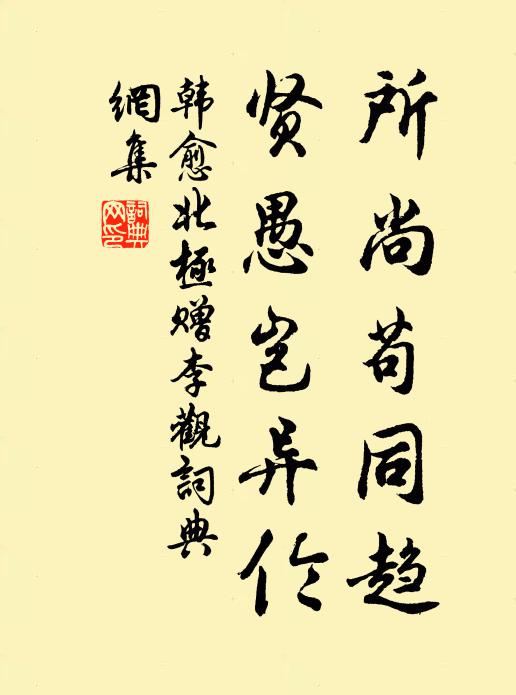 所尚苟同趋
贤愚岂异伦
韩愈北極赠李觀詞典
網集
詞典网印